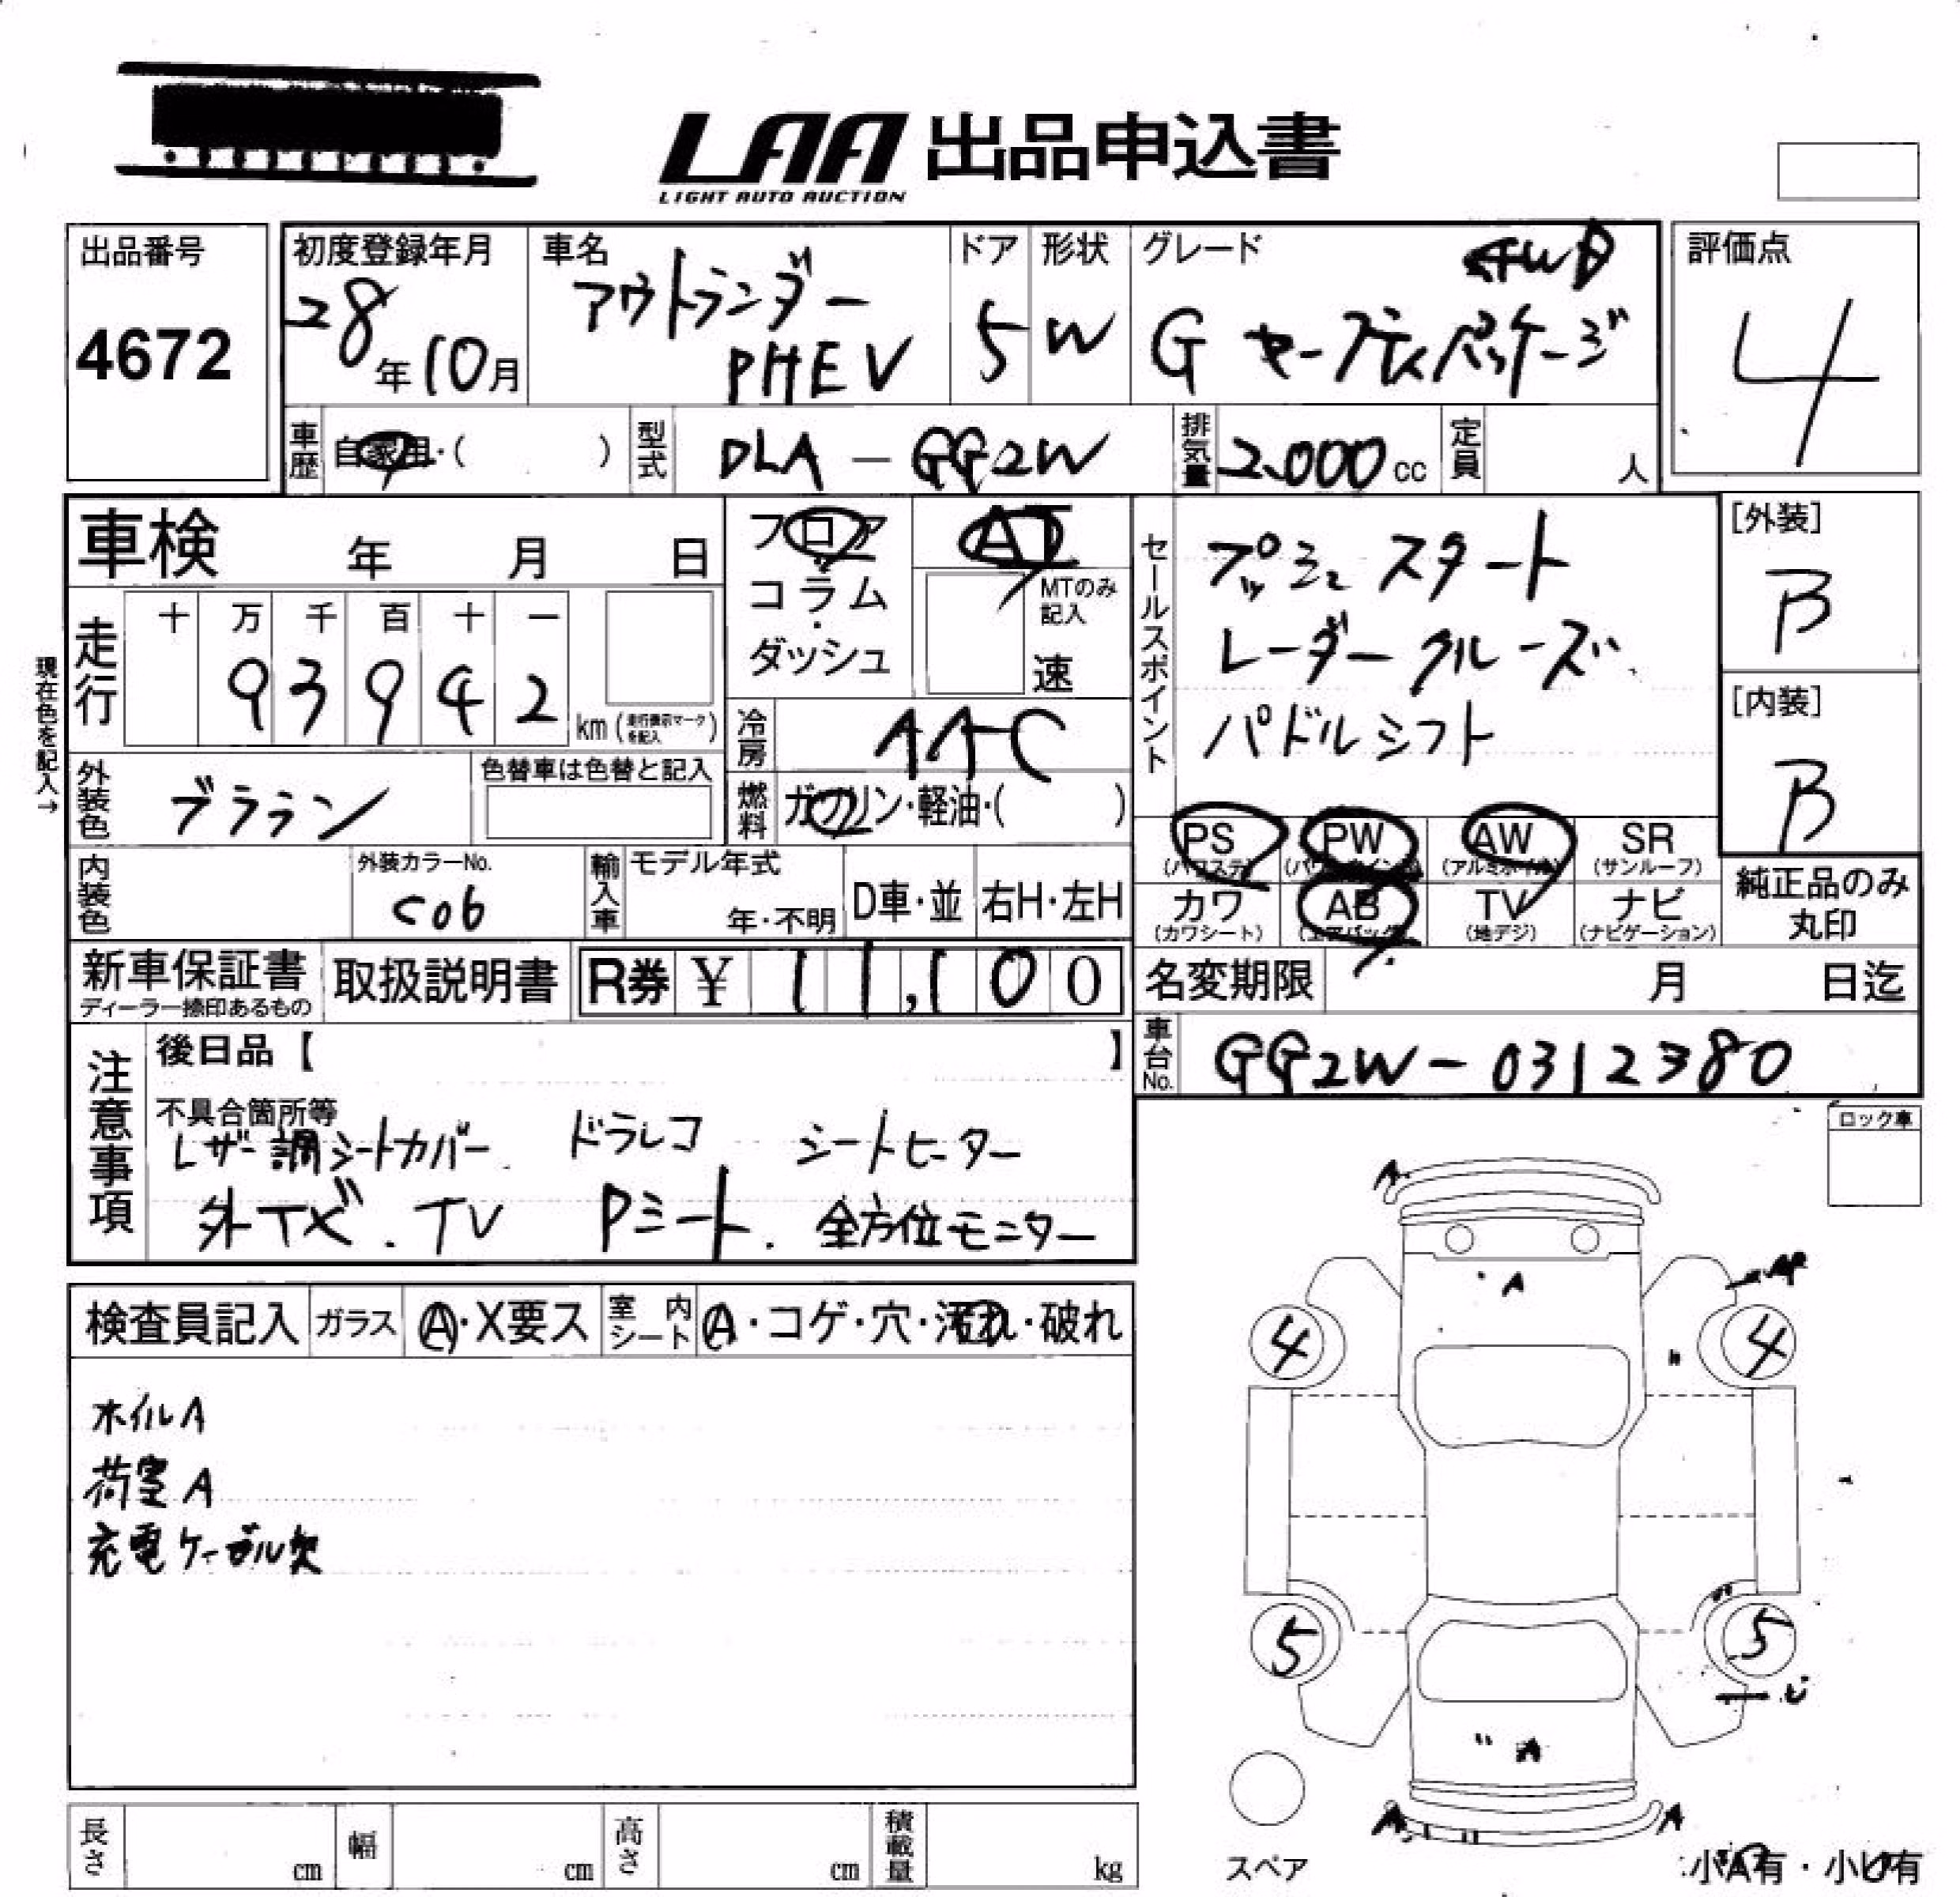 LAA 出品申込書
LIGHT AUTO AUCTION
出品番号
4672
初度登録年月
28年10月
車名
アウトランダー
PHEV
ドア
5
形状
W
グレード
4WD
G セーフティパッケージ
評価点
4
車歴
自家用・( )
型式
DLA-GG2W
排気量
2.000cc
定員
人
車検 年 月 日
フロア
コラム
・
ダッシュ
AT
MTのみ
記入
速
セールスポイント
プッシュスタート
レーダークルーズ
パドルシフト
[外装]
B
[内装]
B
現在色を記入→
走行
十 万 千 百 十 一
9 3 9 4 2
km(走行表示マークを記入)
冷房
AAC
燃料
ガソリン・軽油・( )
外装色
ブラウン
色替車は色替と記入
内装色
外装カラーNo.
C06
輸入車
モデル年式
年・不明
D車・並
右H・左H
PS
(パワステ)
PW
AW
(アルミホイル)
SR
(サンルーフ)
カワ
(カワシート)
AB
(エアバック)
TV
(地デジ)
ナビ
(ナビゲーション)
純正品のみ
丸印
新車保証書
ディーラー捺印あるもの
取扱説明書
R券 ¥ 11,100
名変期限 月 日迄
車台No.
GG2W-0312380
注意事項
後日品【 】
不具合箇所等
レザー調シートカバー. ドラレコ シートヒーター
外TX. TV Pシート. 全方位モニター
ロック車
検査員記入
ガラス
A・X要ス
室内シート
A・コゲ・穴・汚れ・破れ
ホイルA
荷室A
充電ケーブル欠
A
A
4
4
5
5
A
A
A
スペア
小A有・小U有
長さ cm
幅 cm
高さ cm
積載量 kg